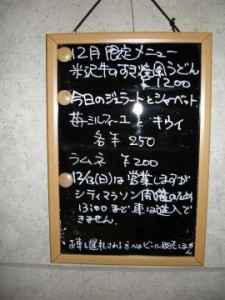 12月限定メニュー
米沢牛のすき焼風うどん
¥1200
今日のジェラートとシャーベット
苺ミルフィーユと キウイ
各¥250
ラムネ ¥200
12/13(日)は営業しますが
シティマラソン開催のため
13:00まで車は進入で
きません。
お車を運転される方へはビール販売しません